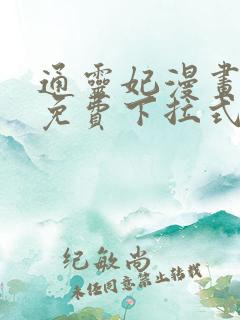 通靈妃漫畫
免費下拉式
纪敏尚
未经同意禁止转载